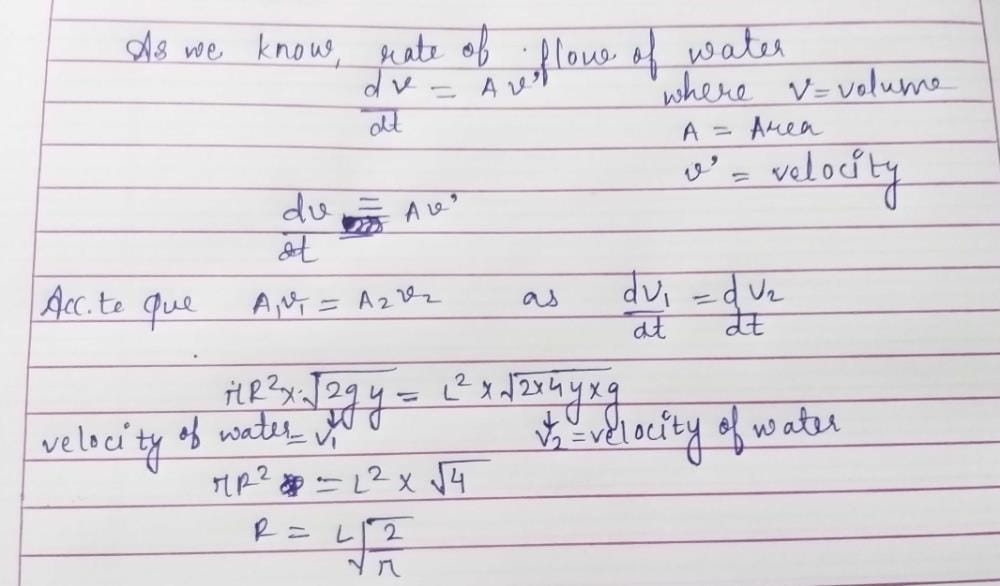 As we know, rate of flow of water
dv/dt = Av' where V = volume
A = Area
v' = velocity
dv/dt = Av'
Acc. to que A₁v₁ = A₂v₂ as dV₁/dt = dV₂/dt
πR² × √2gy = L² × √2×4y×g
velocity of water = v₁ ↓ ↓ v₂ = velocity of water
πR² = L² × √4
R = L√2/π